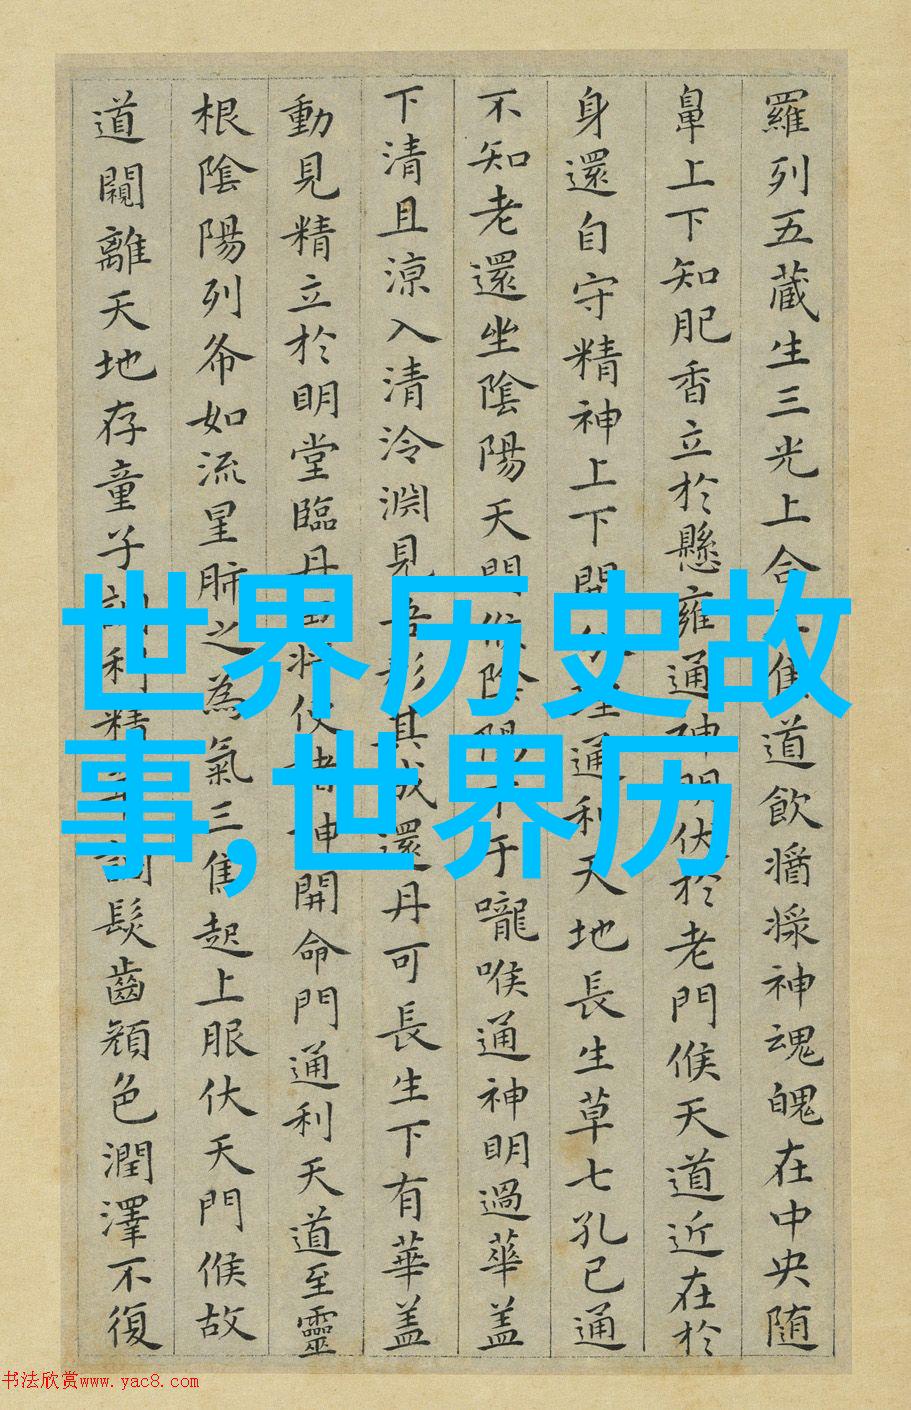 羅列五藏生三光上合三焦道飲醬漿神魂魄在中央随
鼻上下知肥香立於懸雍通神明伏於老門候天道近在於
身還自守精神上下開分理通利天地長生草七孔已通
不知老還坐陰陽天門候陰陽下于嚨喉通神明過華盖
下清且涼入清泠淵見吾形其成還丹可長生下有華盖
動見精立於明堂臨丹田将使諸神開命門通利天道至靈
根陰陽列布如流星肺之為氣三焦起上服伏天門候故
道闚離天地存童子調利精華調髮齒顔色潤澤不復
世界历史故
事,世界历
书法欣赏www.yac8.com